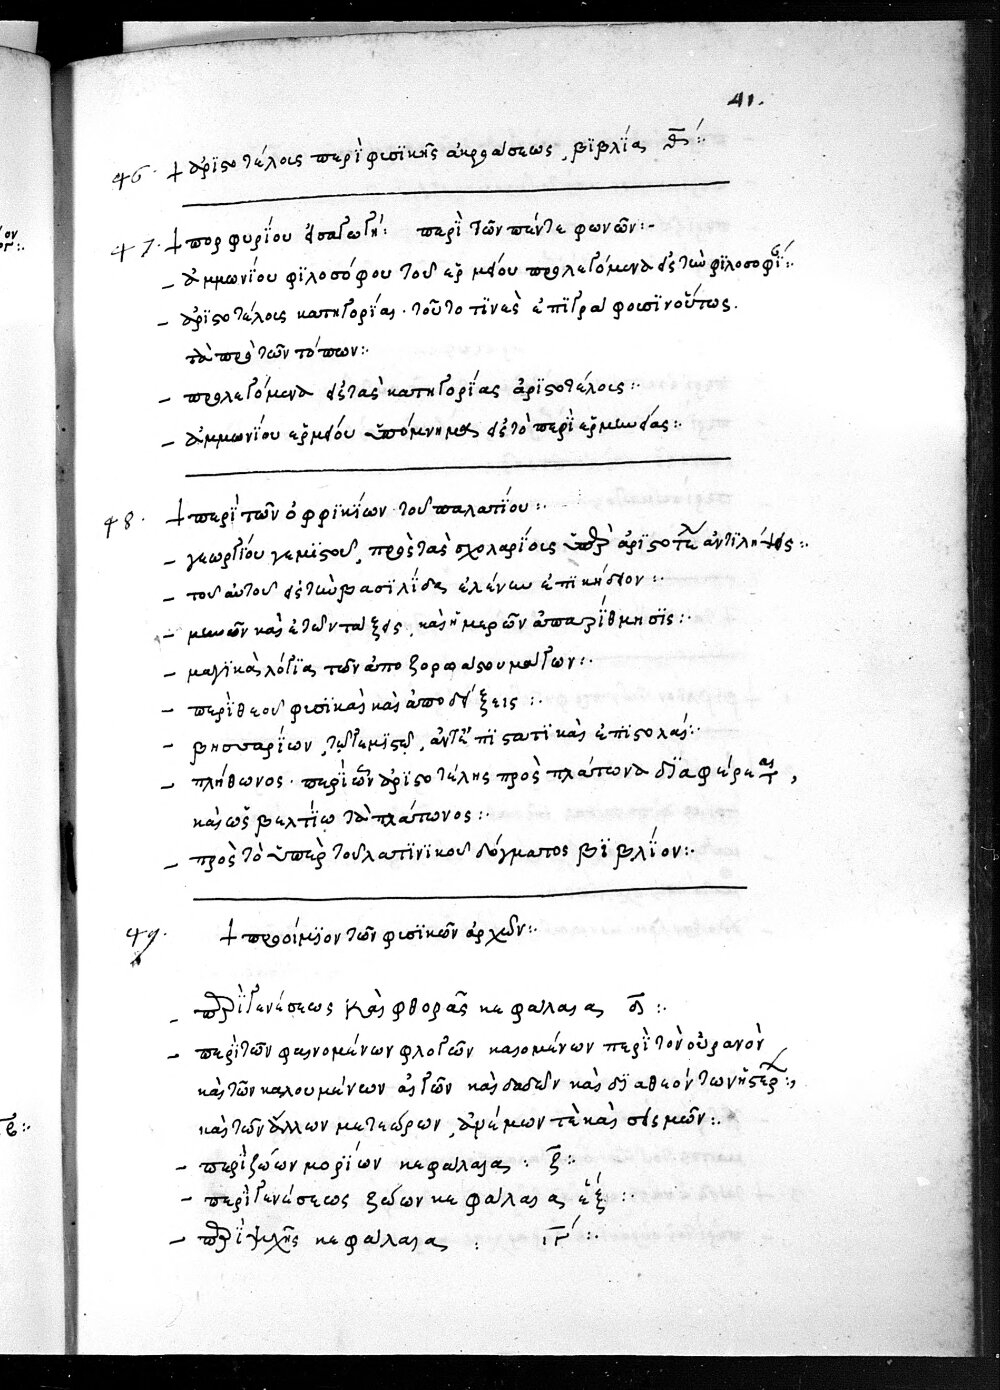 41.
46. + ἀρϊστοτέλοις περῒ φισϊκῆς ἀκροάσεως, βϊβλΐας θ΄:
47. + πορφυρΐου ἐισαγωγὴ: περῒ τῶν πέντε φωνῶν:-
– ἀμμωνΐου φϊλοσόφου τοῦ ἑρμείου προλεγόμενα εἰς τὴν φϊλοσοφΐ:
– ἀρϊστοτέλοις κατηγορΐας. τοῦτο τϊνὲς ἐπϊγράφοισϊν οὕτως.
τὰ πρὸ τῶν τόπων:
– προλεγόμενα εἰς τὰς κατηγορΐας ἀρϊστοτέλοις:
– ἀμμωνΐου ἑρμείου ὑπόμνημα εἰς τὸ περῒ ἑρμηνείας:
48. + περῒ τῶν ὀφφϊκΐων τοῦ παλατΐου:
– γεωργΐου γεμϊστοῦ, πρὸς τὰς σχολαρΐοις ὑπὲρ ἀρϊστοτ ἀντϊλήψεις:
– τοῦ αὐτοῦ εἰς τὴν βασϊλΐδα ἑλένην ἐπϊκήδειον:
– μηνῶν καὶ ἐτῶν τάξεις, καὶ ἡμερῶν ἀπαρΐθμησϊς:
– μαγϊκὰ λόγϊα τῶν ἀπο ζοροάστρου μάγων:
– περῒ θεοῦ φισϊκαὶ καὶ ἀποδείξεις:
– βησσαρΐων, τῷ γεμϊστῷ, ἀντεπϊστατϊκαὶ ἐπϊστολαί:
– πλήθωνος. περῒ ὧν ἀρϊστοτέλης πρὸς πλάτωνα δϊαφέρεται,
καὶ ὡς βελτΐω τὰ πλάτωνος:
– πρὸς τὸ ὑπὲρ τοῦ λατϊνϊκοῦ δόγματος βϊβλΐον:
49. + προοίμϊον τῶν φισϊκῶν ἀρχῶν:
– περῒ γενέσεως καὶ φθορᾶς κεφάλαια :
– περῒ τῶν φαινομένων φλογῶν καιομένων περῒ τὸν οὐρανὸν
καὶ τῶν καλουμένων αἰγῶν καὶ δαλῶν καὶ δϊαθεόντων ἀστέρ:
καὶ τῶν ἄλλων μετεώρων, ἀνέμων τὲ καὶ σεισμῶν:
– περῒ ζώων μορΐων κεφάλαια. ξ:
– περῒ γενέσεως ζώων κεφάλαια :
– περῒ ψιχῆς κεφάλαια : ιγ΄: